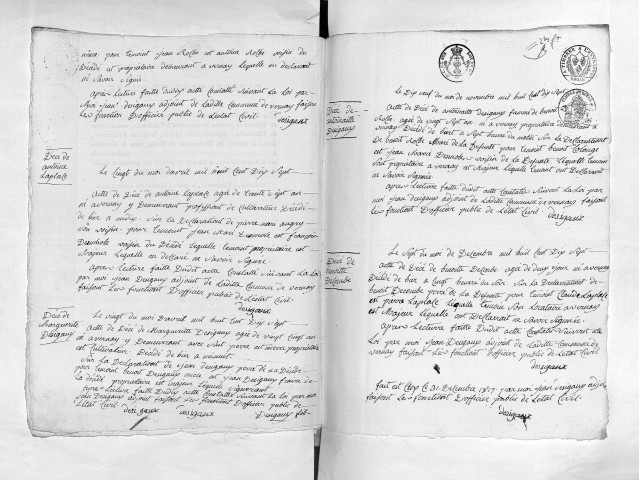 mère pour temoint jean Rolle et antoine Rolle voisin du
Décédé et propriétaire demeurant a vernay Lequelle en declarant
ne Savoir Signée
apres Lecture faitte dudit acte Constatté Suivant La Loi par
Moi jean desigaux adjoint de Laditte Commune de vernay faisant
Les fonction D'officier public de Letat Civil.
desigaux
Décé de
antoine
Laplace
Le vingt du moi d'avril mil huit Cent Dix Sept
acte de Décé de antoine Laplace agé de trente Sept an
né a vernay y Demeurant proffession de Cultivateur Décédé
de hier a midy. Sur La Declaration de pierre
Son voisin pour temoint jean Marie et françois
Desmbole voisin du Décédé Lequelle temoint propriétaire est
Majeur Lequelle en declaré ne Savoir Signée
apres Lecture faitte Dudit acte Constatté Suivant La Loi
par moi jean Desigaux adjoint de Laditte Commune de vernay
faisant Les fonctions D'officier public de Letat Civil
desigaux
Décé de
Marguerite
Desigaux
Le vingt du moi Davril mil huit Cent Dix Sept
acte de Décé de Marguerite Desigaux agé de vingt an
né a vernay y Demeurant avec Son pere et mere propriétaire
est Cultivateur Décédé de hier a minuit.
Sur La Déclaration de jean Desigaux pere de La Décédé
pour temoint benoit Desigaux et jean Desigaux
La décédé propriétaire est majeur Lequelle
apre Lecture faitte Dudit acte Constatté Suivant La Loi par moi
jean Desigaux adjoint faisant Les fonctions D'officier public de
Letat Civil.
desigaux desigaux Desigaux
Décé de
antoinette
Desigaux
Le Dix neuf du moi de novembre mil huit Cent dix Sept
Acte de Décé de antoinette desigaux famme de benoit
Rolle agé de vingt Sept an né a vernay propriétaire demeurant a
vernay Décédé de hier a Sept heure du matin Sur La Declaration
de benoit Rolle Mari de La Defunte pour temoint benoit
est jean Marie voisin de La Defunte Lequelle temoin
Sont propriétaire a vernay est Majeur Lequelle temoint ont Declarant
ne Savoir Signée
apres Lecture faitte Dudit acte Constatée Suivant La Loi par
moi jean Desigaux adjoint de Laditte Commune de vernay faisant
Les fonctions D'officier public de Letat Civil.
desigaux
Décé de
benoitte
Decombe
Le Sept du moi de Decembre mil huit Cent Dix Sept
acte de Décé de benoitte Decombe agé de deux jour né a vernay
Décédé de hier a vingt heure du Soir Sur La Declaration de
benoit Decombe pere de La Defunte pour temoint Claude Laplace
est pierre Laplace Lequelle temoin Son Locataire a vernay
est Majeur Lequelle est Declarant ne Savoir Signée
apres Lecture faitte Dudit acte Constatée Suivant La
Loi par moi jean Desigaux adjoint de Laditte Commune de
vernay faisant Les fonctions D'officier public de Letat Civil
desigaux
fait est Clos Ce 31 Decembre 1817 par moi jean desigaux adjoint
faisant Les fonctions D'officier public de Letat Civil.
desigaux